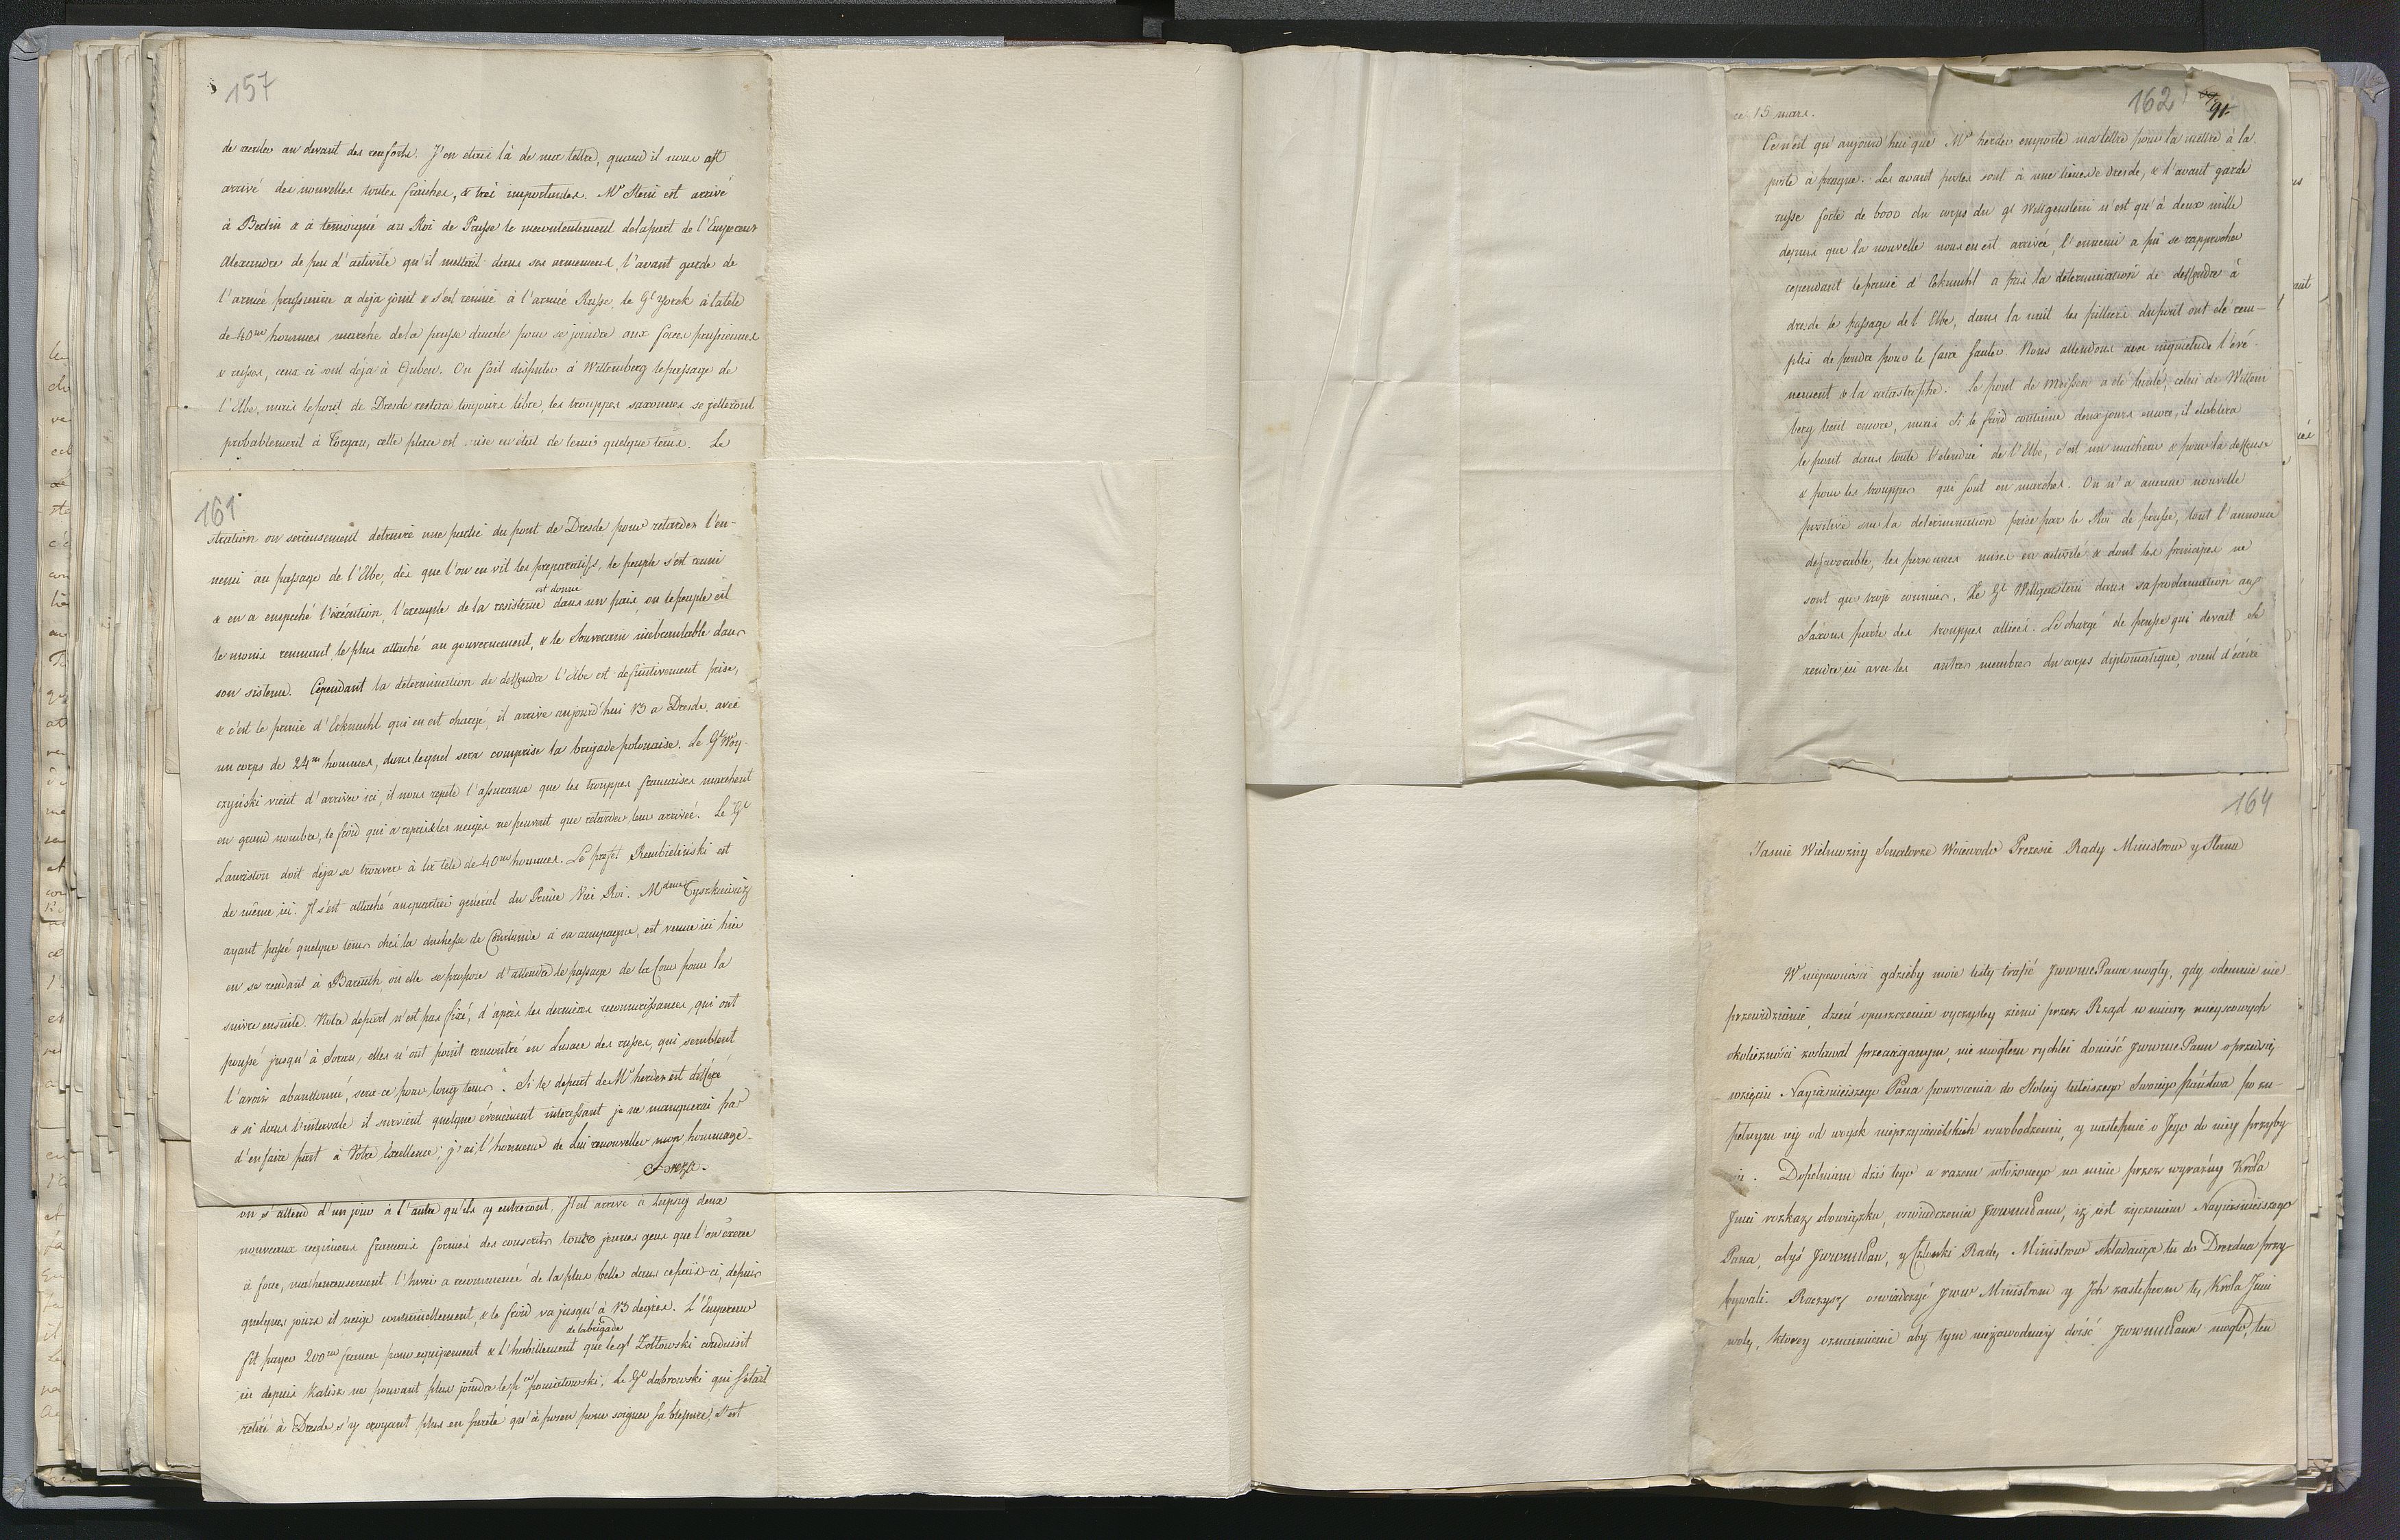 157
de rester au devant des renforts. J'en etais là de ma lettre, quand il nous est
arrivé des nouvelles toutes fraiches, & très importantes. Mr Stein est arrivé
à Berlin & a temoigné au Roi de Prusse le mecontentement de la part de l'Empereur
Alexandre de peu d'activité qu'il mettait dans ses armemens, l'avant garde de
l'armée prussienne a deja joint & s'est reunie à l'armée Russe, le Gl Yorck à la tête
de 40m hommes marche de la prusse ducale pour se joindre aux forces prussiennes
& russes, ceux ci sont déja à Guben. On fait disputer à Wittemberg le passage de
l'Elbe, mais le pont de Dresde restera toujours libre, les trouppes saxonnes se jetteront
probablement à Torgau, cette place est mise en état de tenir quelque tems. Le
161
stration ou serieusement detruire une partie du pont de Dresde pour retarder l'en-
nemi au passage de l'Elbe, dès que l'on en vit les preparatifs, le peuple s'est reuni
& en a empeché l'exécution, l'exemple de la resistence est donné dans un pais, où le peuple est
le moins remuant, le plus attaché au gouvernement, & le Souverain inebranlable dans
son sisteme. Cependant la determination de deffendre l'Elbe est definitivement prise,
& c'est le prince d'Eckmuhl qui en est chargé, il arrive aujourd'hui 13 a Dresde, avec
un corps de 24m hommes, dans lequel sera comprise la brigade polonaise. Le Gl Woy-
czyński vient d'arriver ici, il nous repete l'assurance que les trouppes francaises marchent
en grand nombre, le froid qui a repris & les neiges ne peuvent que retarder leur arrivée. Le Gl
Lauriston doit déja se trouver à la tête de 40m hommes. Le prefet Rembieliński est
de même ici. Il s'est attaché au quartier général du Prince Vice Roi. Mdame Tyszkiewicz
ayant passé quelque tems chéz la duchesse de Courlande à sa campagne, est venue ici hier
en se rendant à Bareuth, où elle se propose d'attendre le passage de la Cour pour la
suivre ensuite. Notre depart n'est pas fixé, d'après les dernieres reconnaissances, qui ont
poussé jusqu'à Sorau, elles n'ont point rencontré en Lusace des russes, qui semblent
l'avoir abandonné, sera-ce pour long tems? Si le depart de Mr herder est differé
& si dans l'intervale il survient quelque évenement interessant je ne manquerai pas
d'en faire part à Votre Excellence; j'ai l'honneur de Lui renouveller mon hommage.
Breza.
on s'attend d'un jour à l'autre qu'ils y entreront. Il est arrivé à Leipsig deux
nouveaux regimens francais formés des conscrits tous jeunes gens que l'on exerce
à force, malheureusement l'hiver a recommencé de la plus belle dans ce pais-ci, depuis
quelques jours il neige continuellement, & le froid va jusqu'à 13 degrés. L'Empereur
fit payer 200m francs pour equipement & l'habillement de la brigade que le gl Zoltowski conduisit
ici depuis Kalisz ne pouvant plus joindre le pce poniatowski. Le Gl dabrowski qui s'etait
retiré à Dresde s'y croyant plus en sureté qu'à posen pour soigner sa blessure, s'est
162
91
ce 15 mars.
Ce n'est qu'aujourd'hui que Mr herder emporte ma lettre pour la mettre à la
poste à prague. Les avant postes sont à une lieue de dresde, & l'avant garde
russe forte de 6000 du corps du gl Wittgenstein n'est qu'à deux mille
depuis que la nouvelle nous en est arrivée, l'ennemi a pû se rapprocher
cependant le prince d'Eckmuhl a pris la determination de deffendre à
dresde le passage de l'Elbe, dans la nuit les pilliers du pont ont été rem-
plis de poudre pour le faire sauter. Nous attendons avec inquietude l'évé-
nement & la catastrophe. Le pont de Meissen a été brulé, celui de Wittem
berg tient encore, mais si le froid continue deux jours encore, il etablira
le pont dans toute l'etendue de l'Elbe, c'est un malheur & pour la deffense
& pour les trouppes qui sont en marches. On n'a aucune nouvelle
positive sur la determination prise par le Roi de prusse, tout l'annonce
défavorable, les personnes mises en activité & dont les principes ne
sont que trop connus. Le Gl Wittgenstein dans sa proclamation aux
Saxons parle des trouppes alliées. Le chargé de prusse qui devait se
rendre ici avec les autres membres du corps diplomatique, vient d'écrire
164
Jasnie Wielmożny Senatorze Woiewodo Prezesie Rady Ministrow y Stanu
W niepewności gdzieby moie listy trafić JWWMPana mogły, gdy odemnie nie
przewidzianie, dzień opuszczenia oyczystey ziemi przez Rząd w miarę mieyscowych
okoliczności zostawał przeciąganym, nie mogłem rychley donieść JWWMPanu o przedsię
wzięciu Nayiasnieiszego Pana powrocenia do Stolicy tuteiszego Swoiego Państwa po zu-
pełnym iey od woysk nieprzyiacielskich oswobodzeniu, y nastąpnie o Jego do niey przyby
ciu. Dopełniam dziś tego a razem włożonego na mnie przez wyraźny Króla
Jmci rozkaz obowiązku, oswiadczenia JWWMPanu, iż iest życzeniem Nayiaśnieiszego
Pana, abyś JWWMPan, y Członki Radę Ministrow składaiące tu do Drezdna przy
bywali. Raczysz oswiadczyć JWW Ministrom y Ich zastępcom tę Króla Jmci
wolę, ktorey oznaimienie aby tym niezawodniey dość JWWMPana mogło, ten